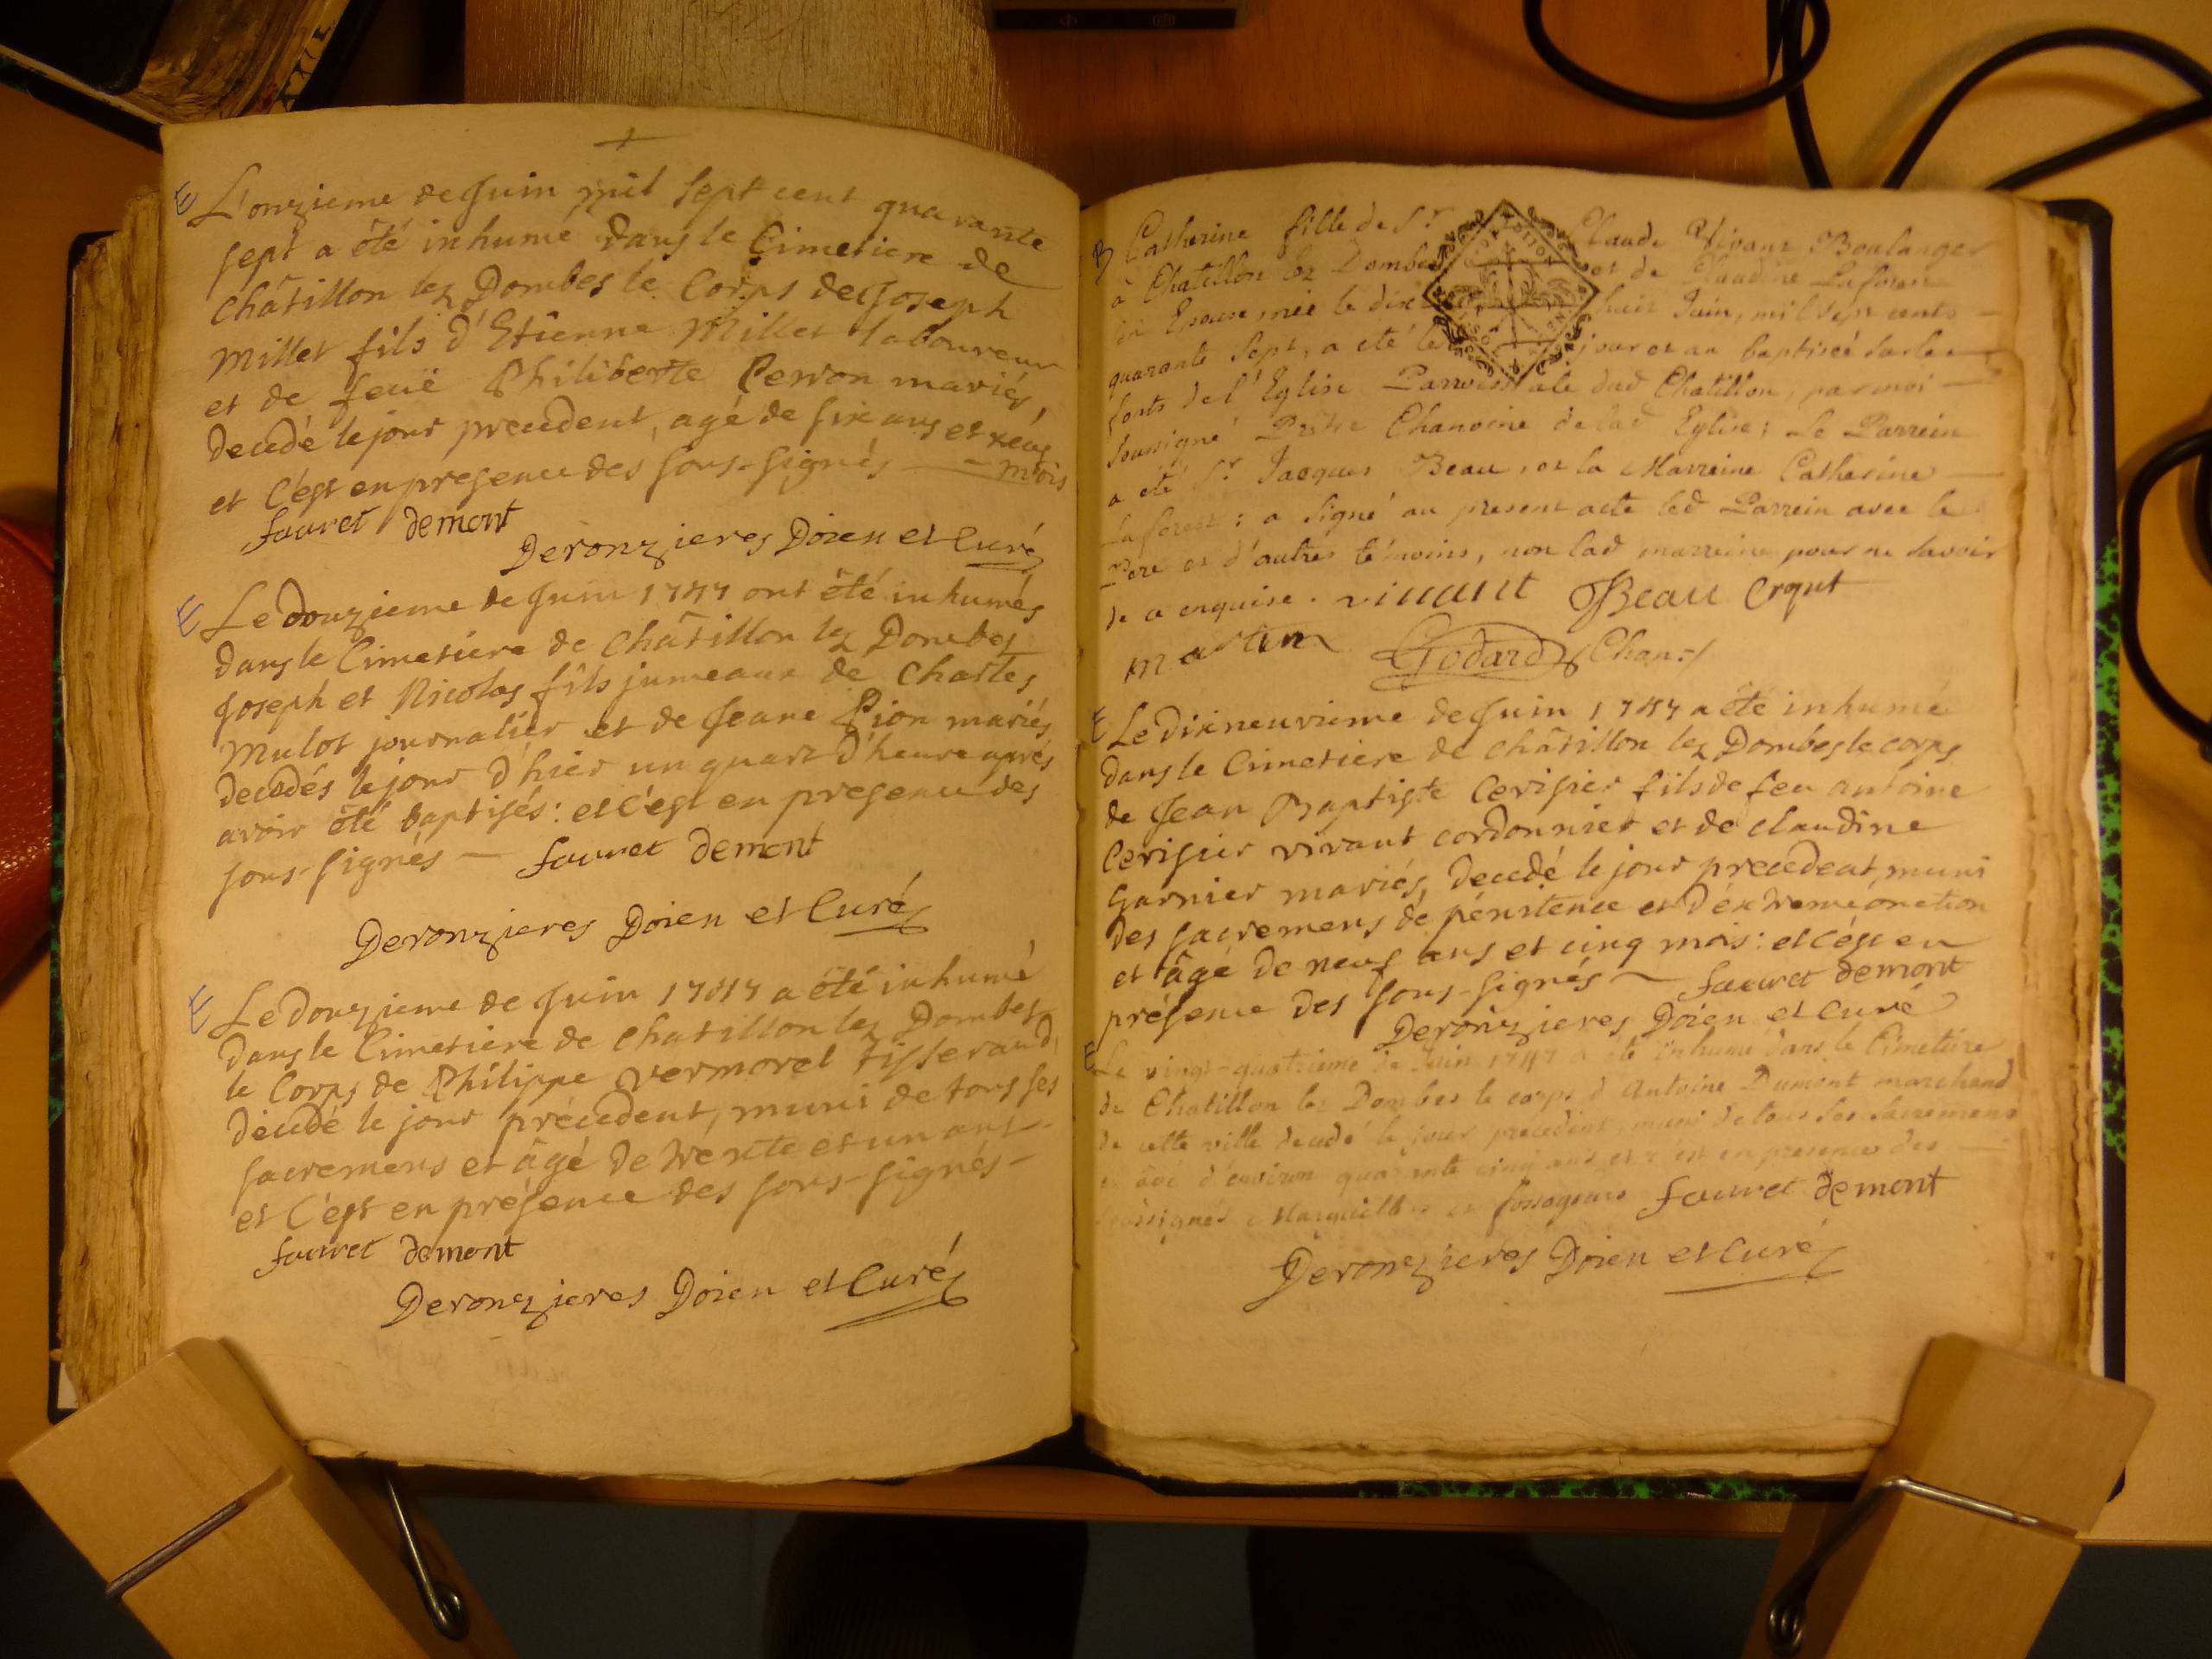 +
E L'onzieme de Juin mil sept cent quarante
sept a êté inhumé dans le Cimetiere de
Châtillon lez Dombes le Corps de Joseph
Millet fils d'Etienne Millet laboureur
et de feuë Philiberte Perron mariés,
decedé le jour precedent, agé de six ans et neuf
mois
et c'est en presence des sous-signés
fauret demont
Deronzieres Doien et Curé
E Le douzieme de Juin 1747 ont êté inhumés
dans le Cimetiere de Châtillon lez Dombes
Joseph et Nicolas fils jumeaux de Charles
Mulot journalier et de Jeane Pion mariés,
decedés le jour d'hier un quart d'heure aprés
avoir êté baptisés: et c'est en presence des
sous-signés — fauret demont
Deronzieres Doien et Curé
E Le douzieme de Juin 1747 a êté inhumé
dans le Cimetiere de Chatillon lez Dombes
le Corps de Philippe Vermorel tisserand,
décedé le jour précedent, muni de tous ses
sacremens et âgé de trente et un ans
et c'est en présence des sous-signés —
fauret demont
Deronzieres Doien et Curé
B Catherine fille de Sr Claude Vivant Boulanger
à Chatillon lez Dombes et de Claudine Laforest
son Epouse, née le dix huit Juin, mil sept cents —
quarante sept, a eté le jour et an baptisée sur les
fonts de l'Eglise Parroissiale dud Chatillon, par moi —
soussigné Prêtre Chanoine de lad Eglise; Le Parrein
a eté Sr Jacques Beau, et la Marreine Catherine —
Laforest: a signé au present acte led Parrein avec le
Pere et d'autres témoins, non lad marreine pour ne savoir
de ce enquise. vivant Beau Crqut
martin Godard Chan:
E Le dixneuvieme de Juin 1747 a êté inhumé
dans le Cimetiere de Châtillon lez Dombes le corps
de Jean Baptiste Cerisier fils de feu antoine
Cerisier vivant cordonnier et de claudine
Garnier mariés, decedé le jour precedent, muni
des sacremens de pénitence et d'éxtremeonction
et âgé de neuf ans et cinq mois: et c'est en
présence des sous-signés — fauret demont
Deronzieres Doien et Curé
E Le vingt-quatrieme de Juin 1747 a eté inhumé dans le Cimetiere
de Chatillon lez Dombes le corps d'Antoine Dumont marchand
de cette ville decedé le jour precedent, muni de tous ses sacremens
et âgé d'environ quarante cinq ans et c'est en presence des —
soussignés Marguilliers et fossoyeurs fauret demont
Deronzieres Doien et Curé